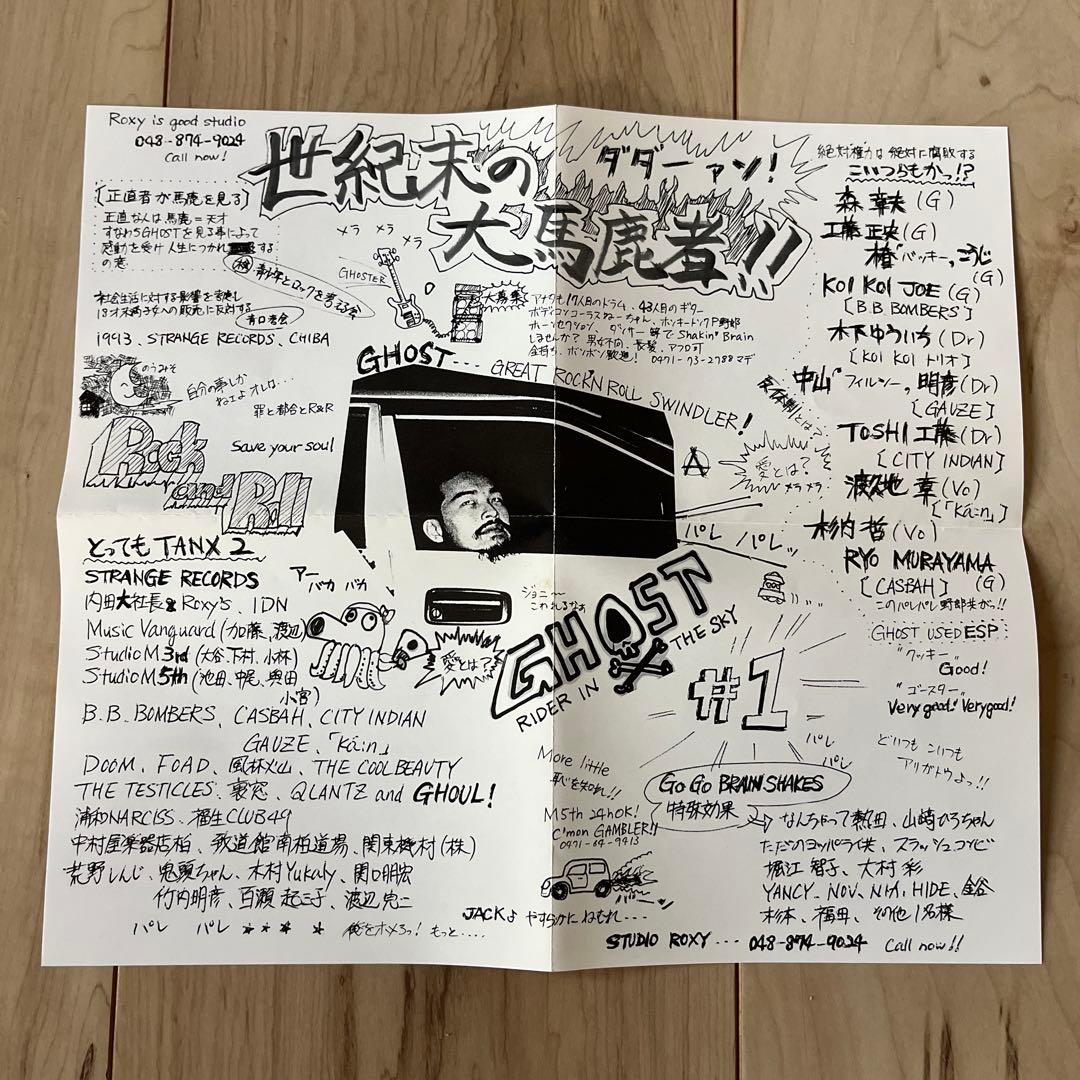 Roxy is good studio
048-874-9024
call now!
世紀末の
大馬鹿者!!
ダダーァン!
絶対権力は絶対に腐敗する
こいつらもかっ!?
[正直者が馬鹿を見る]
正直な人は馬鹿=天才
すなわちGHOSTを見る事によって
感動を受け人生につかれ
する
の意
青少年とロックを考える会
社会生活に対する影響を考慮し
青口考会
1993. STRANGE RECORDS, CHIBA
メラ メラ メラ
GHOSTER
大募集
アナタも17人目のドラム、43人目のギター
ボディコンコーラスねーちゃん、ホンキートンクP野郎
ホーンセクション、ダンサー等でShakin' Brain
しませんか? 男女不問、長髪、アフロ可
金持ち、ボンボン歓迎! 0471-93-2788マデ
森 幸夫(G)
工藤 正央(G)
椿"バッキー"こうじ
(G)
KOI KOI JOE(G)
[B.B.BOMBERS]
木下ゆういち(Dr)
[KOI KOIトリオ]
中山"フィルソー"明彦(Dr)
[GAUZE]
TOSHI 工藤(Dr)
[CITY INDIAN]
渡久地 幸(Vo)
[「Kä:n」]
杉内 哲(Vo)
RYO MURAYAMA
(G)
[CASBAH]
このパレパレ野郎共がっ!!
GHOST USED ESP
"クッキー"
Good!
"ゴースター"
Very good! Very good!
どいつもこいつも
アリガトウよっ!!
GHOST....
GREAT ROCK'N ROLL SWINDLER!
反体制とは?
愛とは?
メラメラ
パレ パレッ
のうみそ
自分の事しか
ねェよオレは...
罪と都合とR&R
Rock
and Roll
save your soul
とってもTANX 2
STRANGE RECORDS
内田大社長& Roxy's, IDN
Music Vanguard(加藤、渡辺)
Studio M 3rd(大谷、下村、小林)
Studio M 5th(池田、中尾、奥田
小宮)
B.B.BOMBERS、CASBAH、CITY INDIAN
GAUZE、「Kä:n」
DOOM、FOAD、風林火山、THE COOLBEAUTY
THE TESTICLES、裏窓、QLANTZ and GHOUL!
浦和NARCISS、福生CLUB49
中村屋楽器店柏、致道館南柏道場、関東機材(株)
荒野しんじ、鬼頭ちゃん、木村Yukaly、関口朋宏
竹内明彦、百瀬 起三子、渡辺 完二
パレ パレ **** * 俺をホメろっ! もっと....
アー
バカ バカ
愛とは?
ジョニ〜
こわれるなぁ
GHOST
RIDER IN THE SKY
#1
More little
恥を知れ!!
M5th 24hOK!
C'mon GAMBLER!!
0471-64-9413
バビーン
JACKよ やすらかにねもれ...
パレ
パレ
GO GO BRAIN SHAKES
特殊効果
なんちゃって熱田、山崎ひろちゃん
ただのヨッパライ共、スラッシュコンビ
堀江 智子、大村 彩
YANCY、NOV、Nけん、HIDE、金谷
杉本、福田、その他1名様
STUDIO ROXY... 048-874-9024 Call now!!